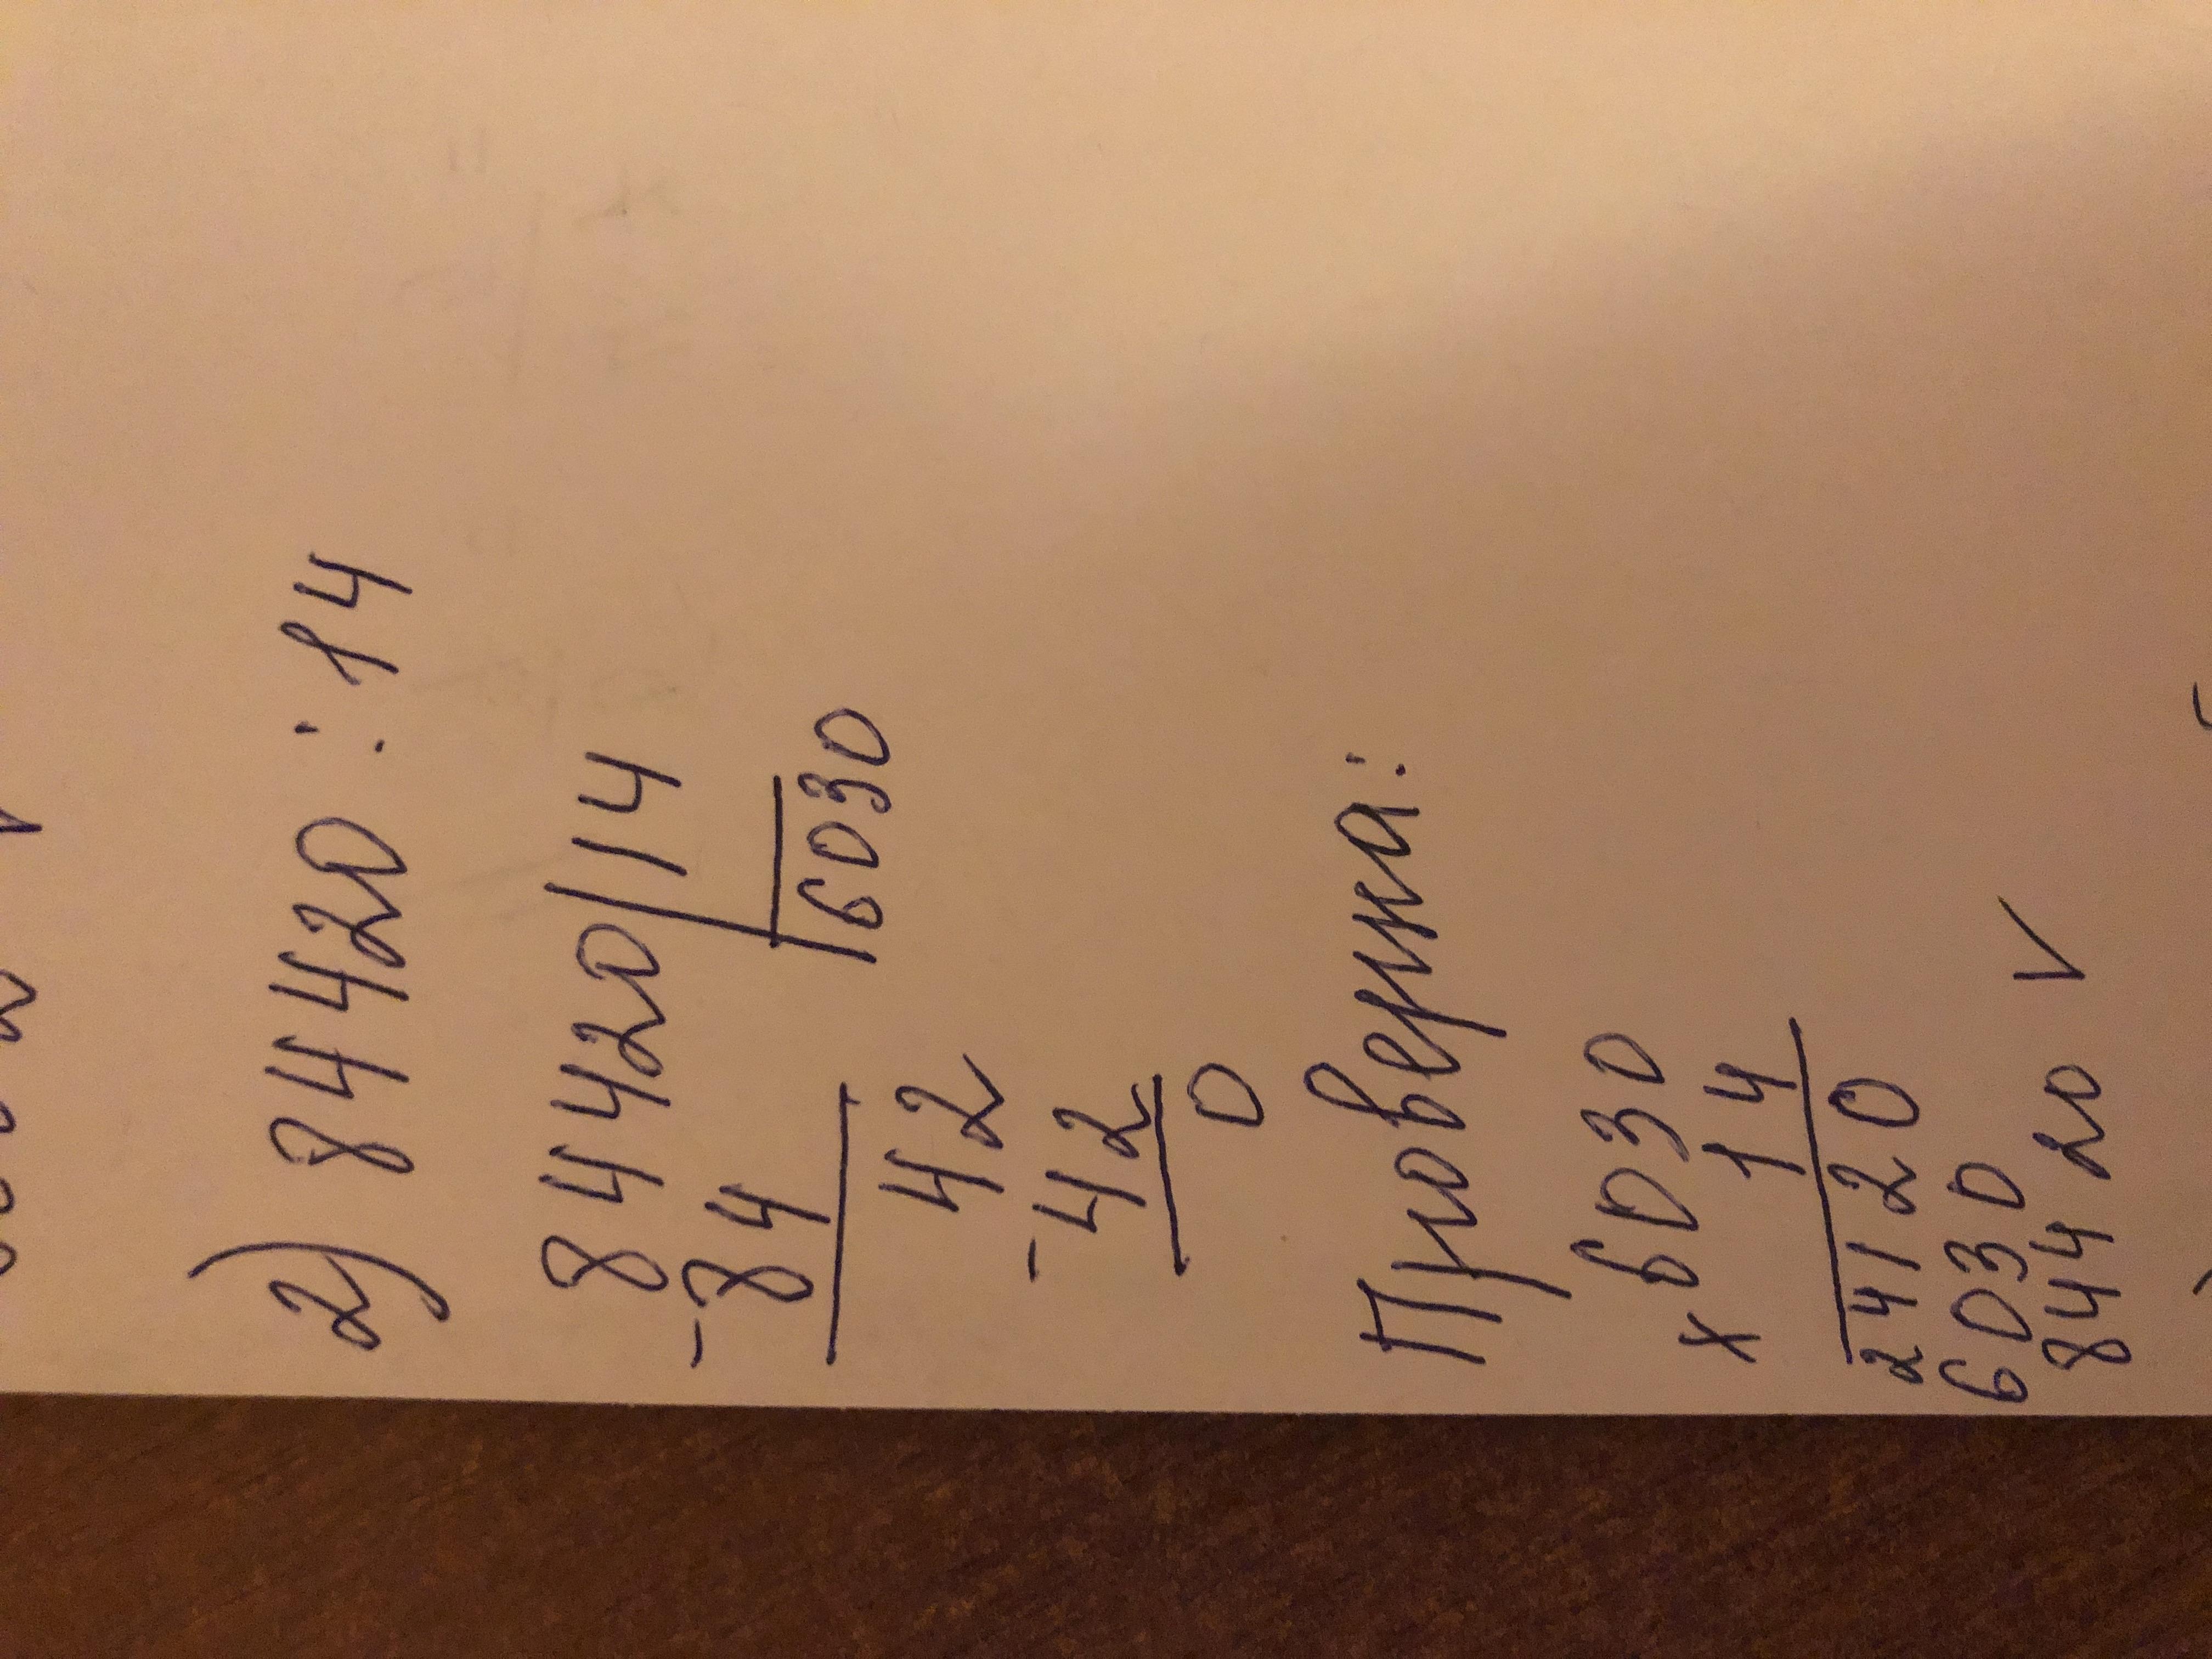 2) 84420 : 14
84420 | 14
-84
6030
42
-42
0
Проверка:
6030
x 14
24120
6030
84420 V